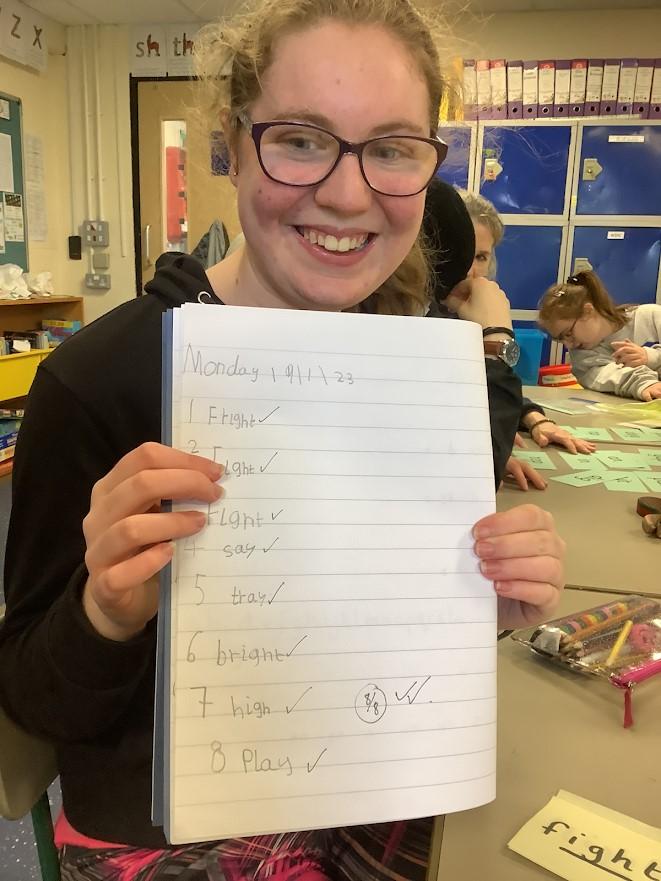 Z X
sh th
Monday 9/1/23
1 Fright ✓
2 Fight ✓
Fight ✓
4 say ✓
5 tray ✓
6 bright ✓
7 high ✓
8/8 ✓✓.
8 Play ✓
fight